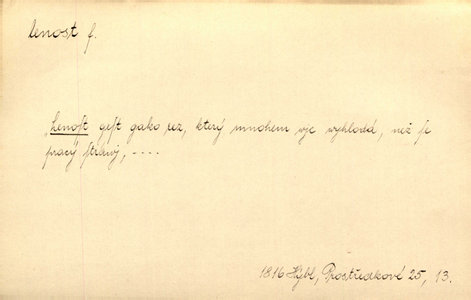 lenost f.
Lenost gest gako rez, který mnohem wjc wyhlodá, než se
pracý stráwj, ----
1816 Hýbl, Prostředkové 25, 13.